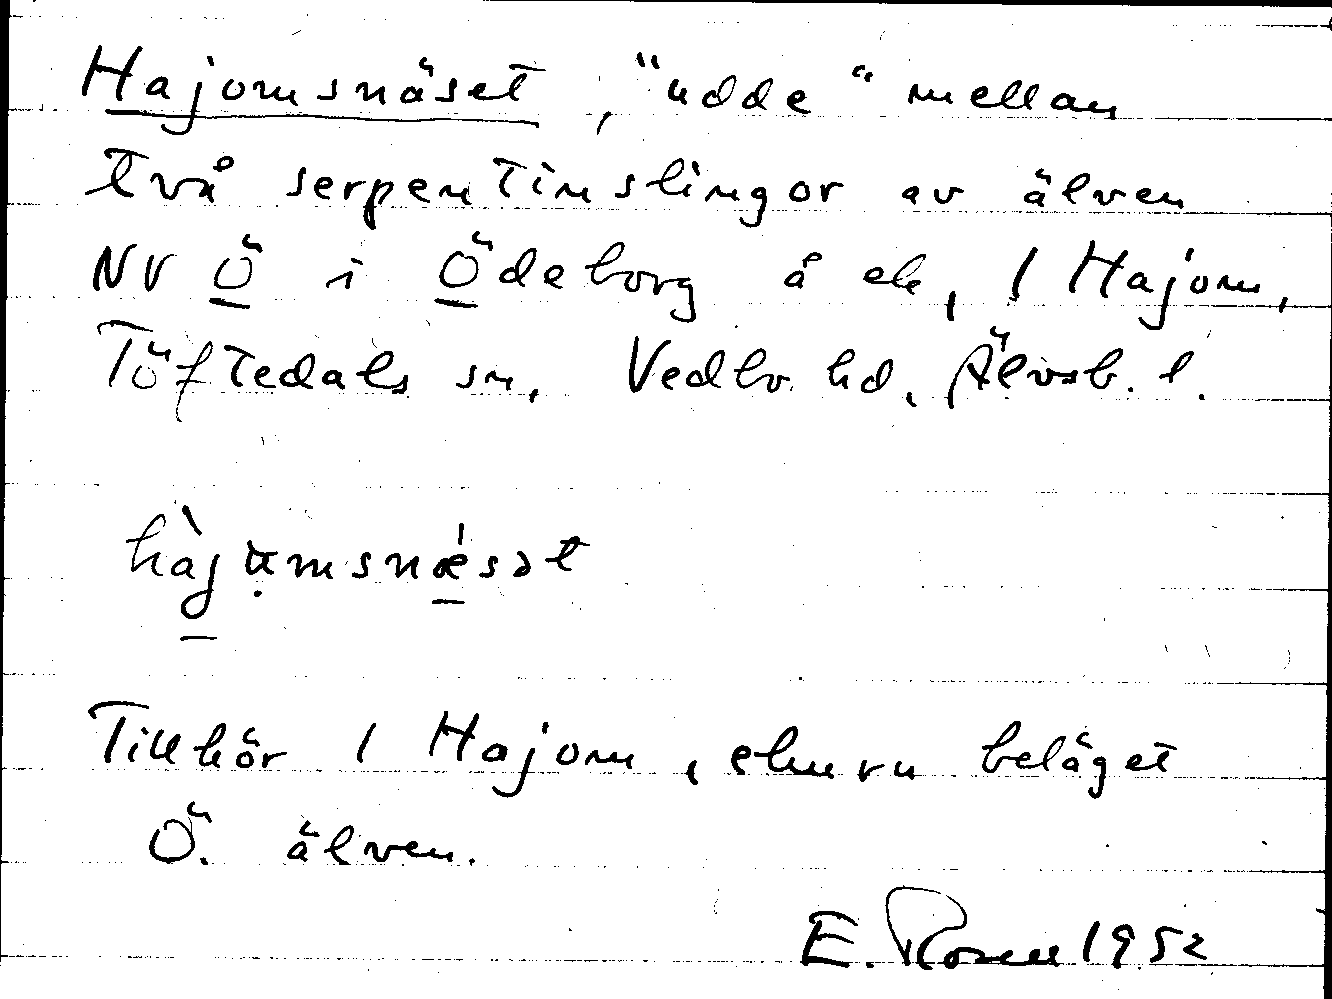 Hajomsnäset, "udde" mellan
två serpentinslingor av älven
NV Ö i Ödeborg å ek, 1 Hajom,
Töftedals sn, Vedbo hd, Älvsb. l.
hàjumsnǽsət
Tillhör 1 Hajom, ehuru beläget
Ö. älven.
E. Rosell 1952